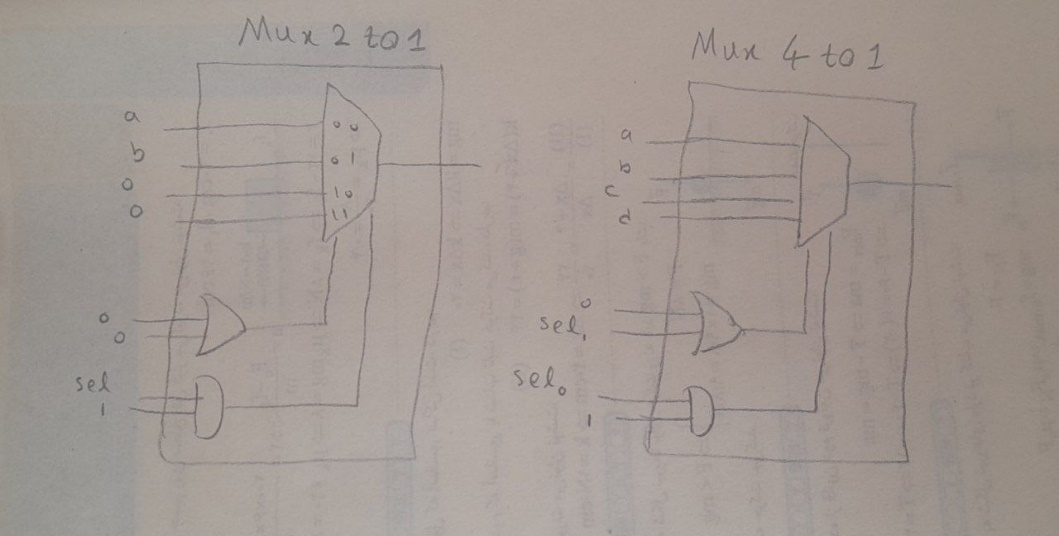 Mux 2 to 1
a
b
0
0
0 0
0 1
1 0
1 1
0
0
sel
1
Mux 4 to 1
a
b
c
d
0
sel1
sel0
1